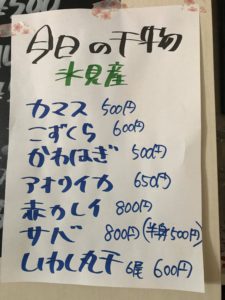 今日の干物
氷見産
カマス 500円
こずくら 600円
かわはぎ 500円
アオリイカ 650円
赤カレイ 800円
サバ 800円(半身500円)
いわし丸干 6尾 600円